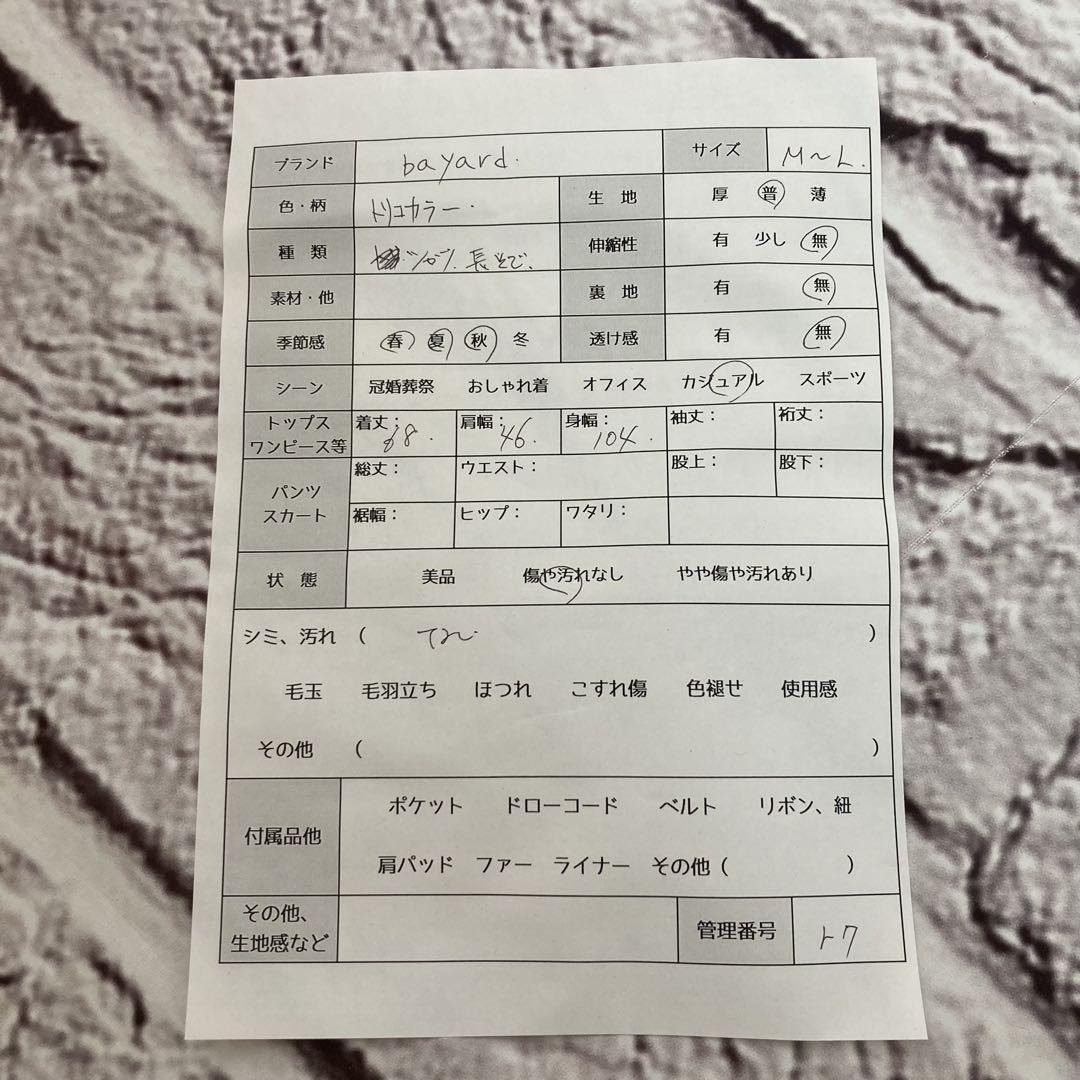 ブランド bayard. サイズ M～L.
色・柄 トリコカラー. 生 地 厚 普 薄
種 類 シャツ. 長そで. 伸縮性 有 少し 無
素材・他 裏 地 有 無
季節感 春 夏 秋 冬 透け感 有 無
シーン 冠婚葬祭 おしゃれ着 オフィス カジュアル スポーツ
トップス ワンピース等 着丈： 68. 肩幅： 46. 身幅： 104. 袖丈： 裄丈：
パンツ スカート 総丈： ウエスト： 股上： 股下：
裾幅： ヒップ： ワタリ：
状 態 美品 傷や汚れなし やや傷や汚れあり
シミ、汚れ （ ）
毛玉 毛羽立ち ほつれ こすれ傷 色褪せ 使用感
その他 （ ）
付属品他 ポケット ドローコード ベルト リボン、紐
肩パッド ファー ライナー その他（ ）
その他、 生地感など 管理番号 ト7